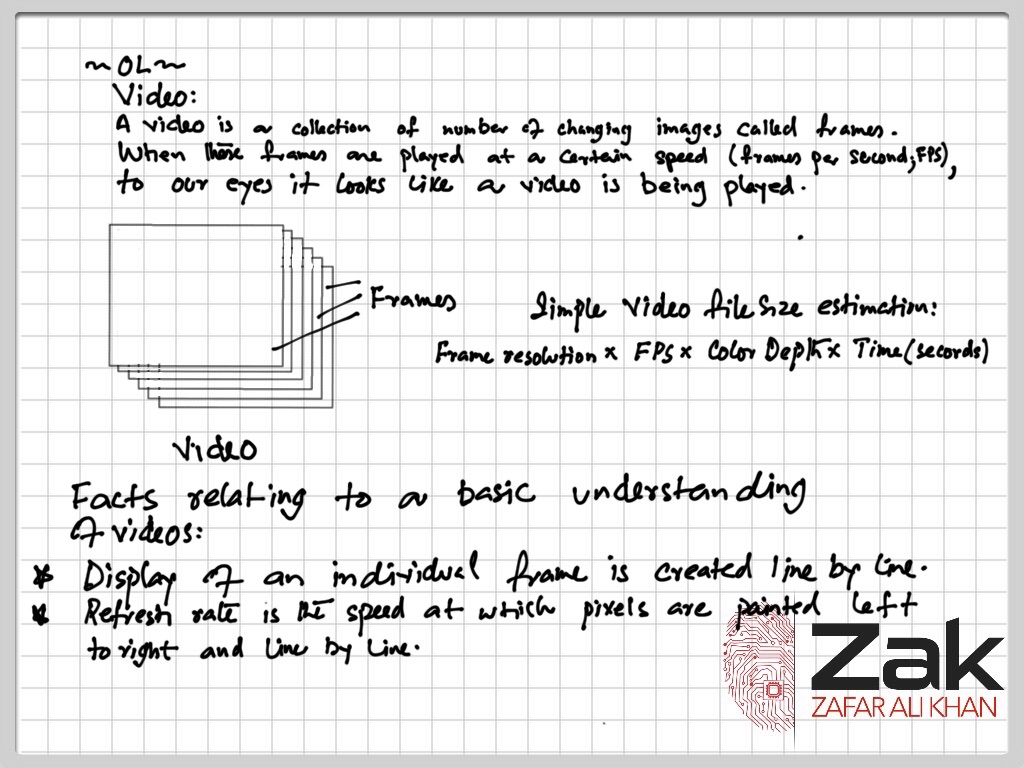 ~OL~
Video:
A video is a collection of number of changing images called frames.
When these frames are played at a certain speed (frames per second, FPS),
to our eyes it looks like a video is being played.
Frames
Simple Video file size estimation:
Frame resolution × FPS × Color Depth × Time (seconds)
Video
Facts relating to a basic understanding
of videos:
* Display of an individual frame is created line by line.
* Refresh rate is the speed at which pixels are painted left
to right and line by line.
Zak
ZAFAR ALI KHAN